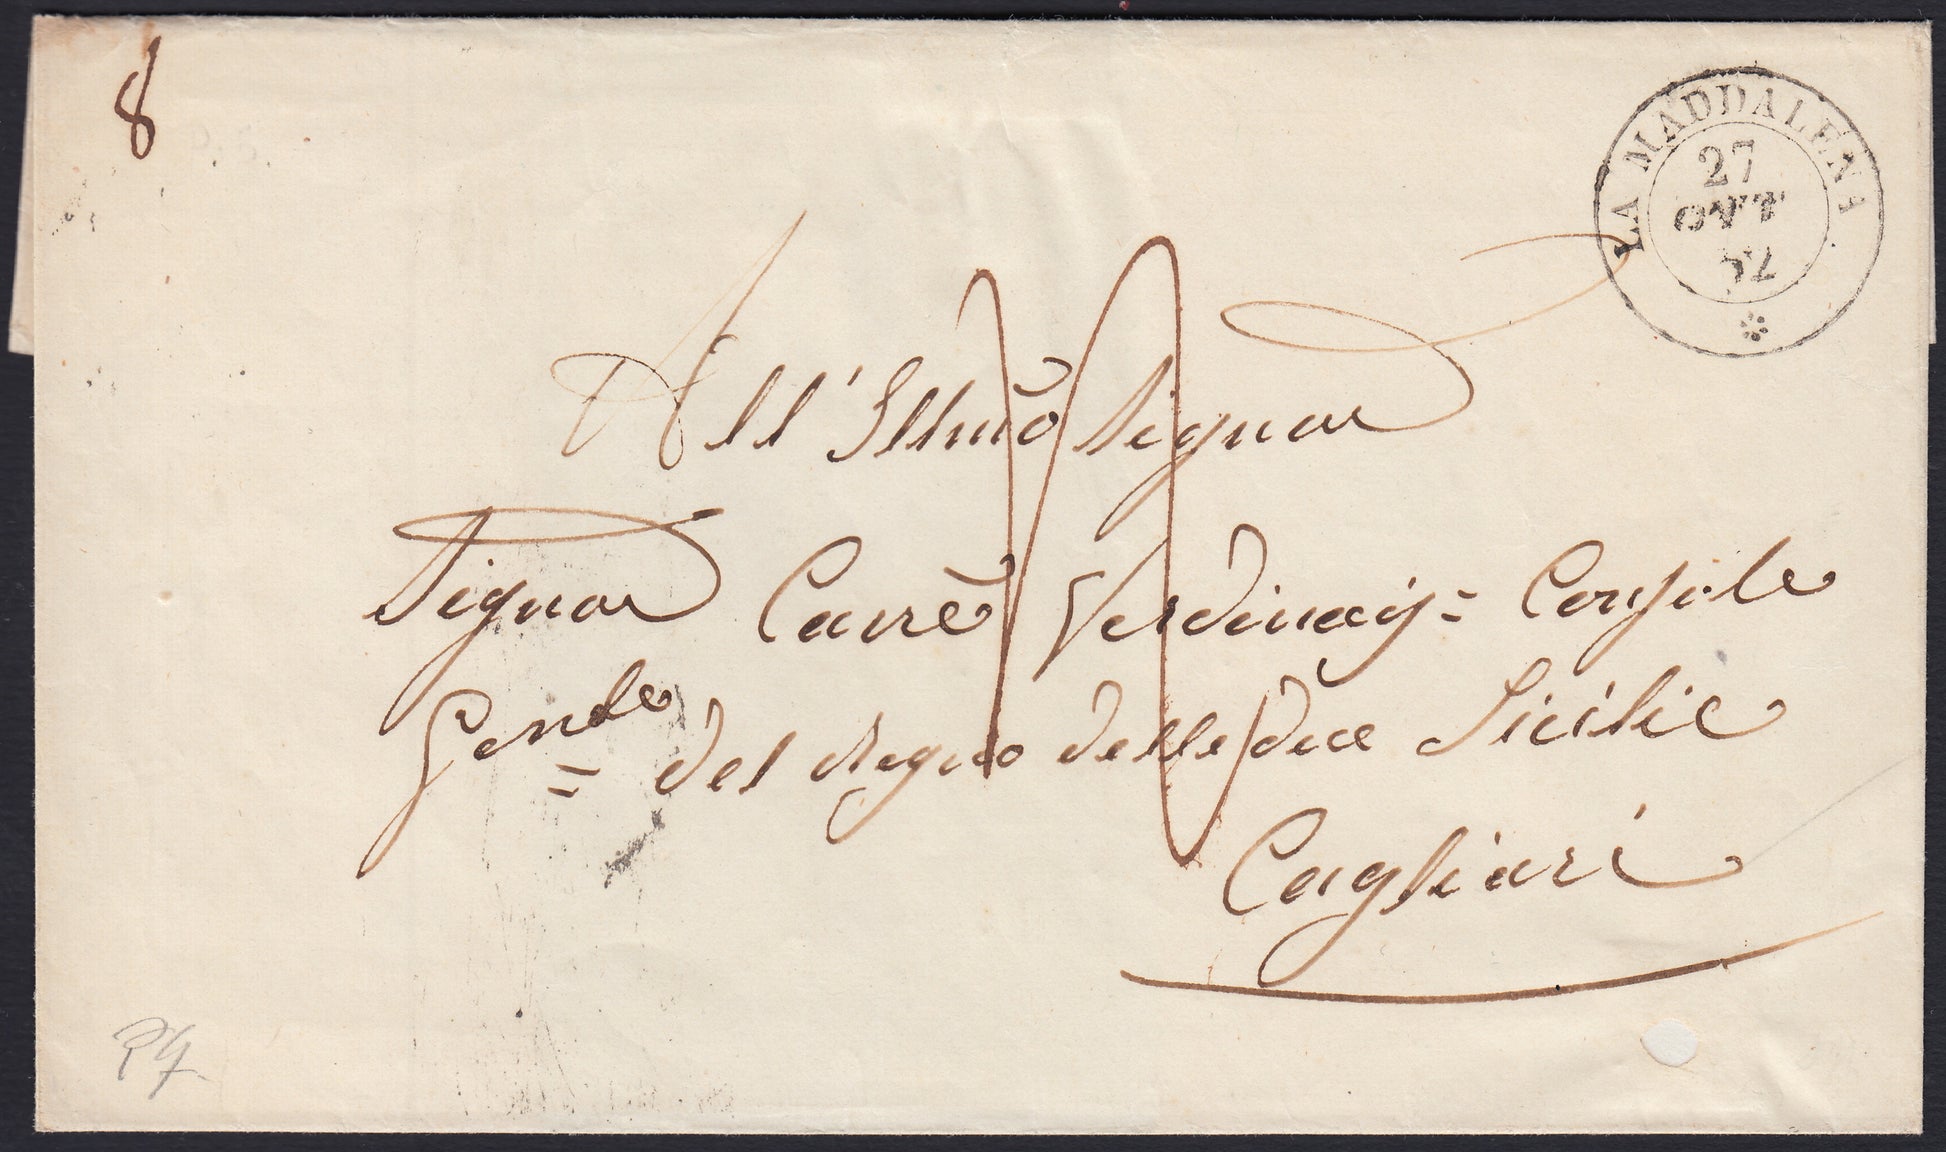 8
LA MADDALENA
27
OTT
All' Illmo Signor
Signor Carrè Verdinois = Console
Genle = del Regno delle due Sicilie
Cagliari